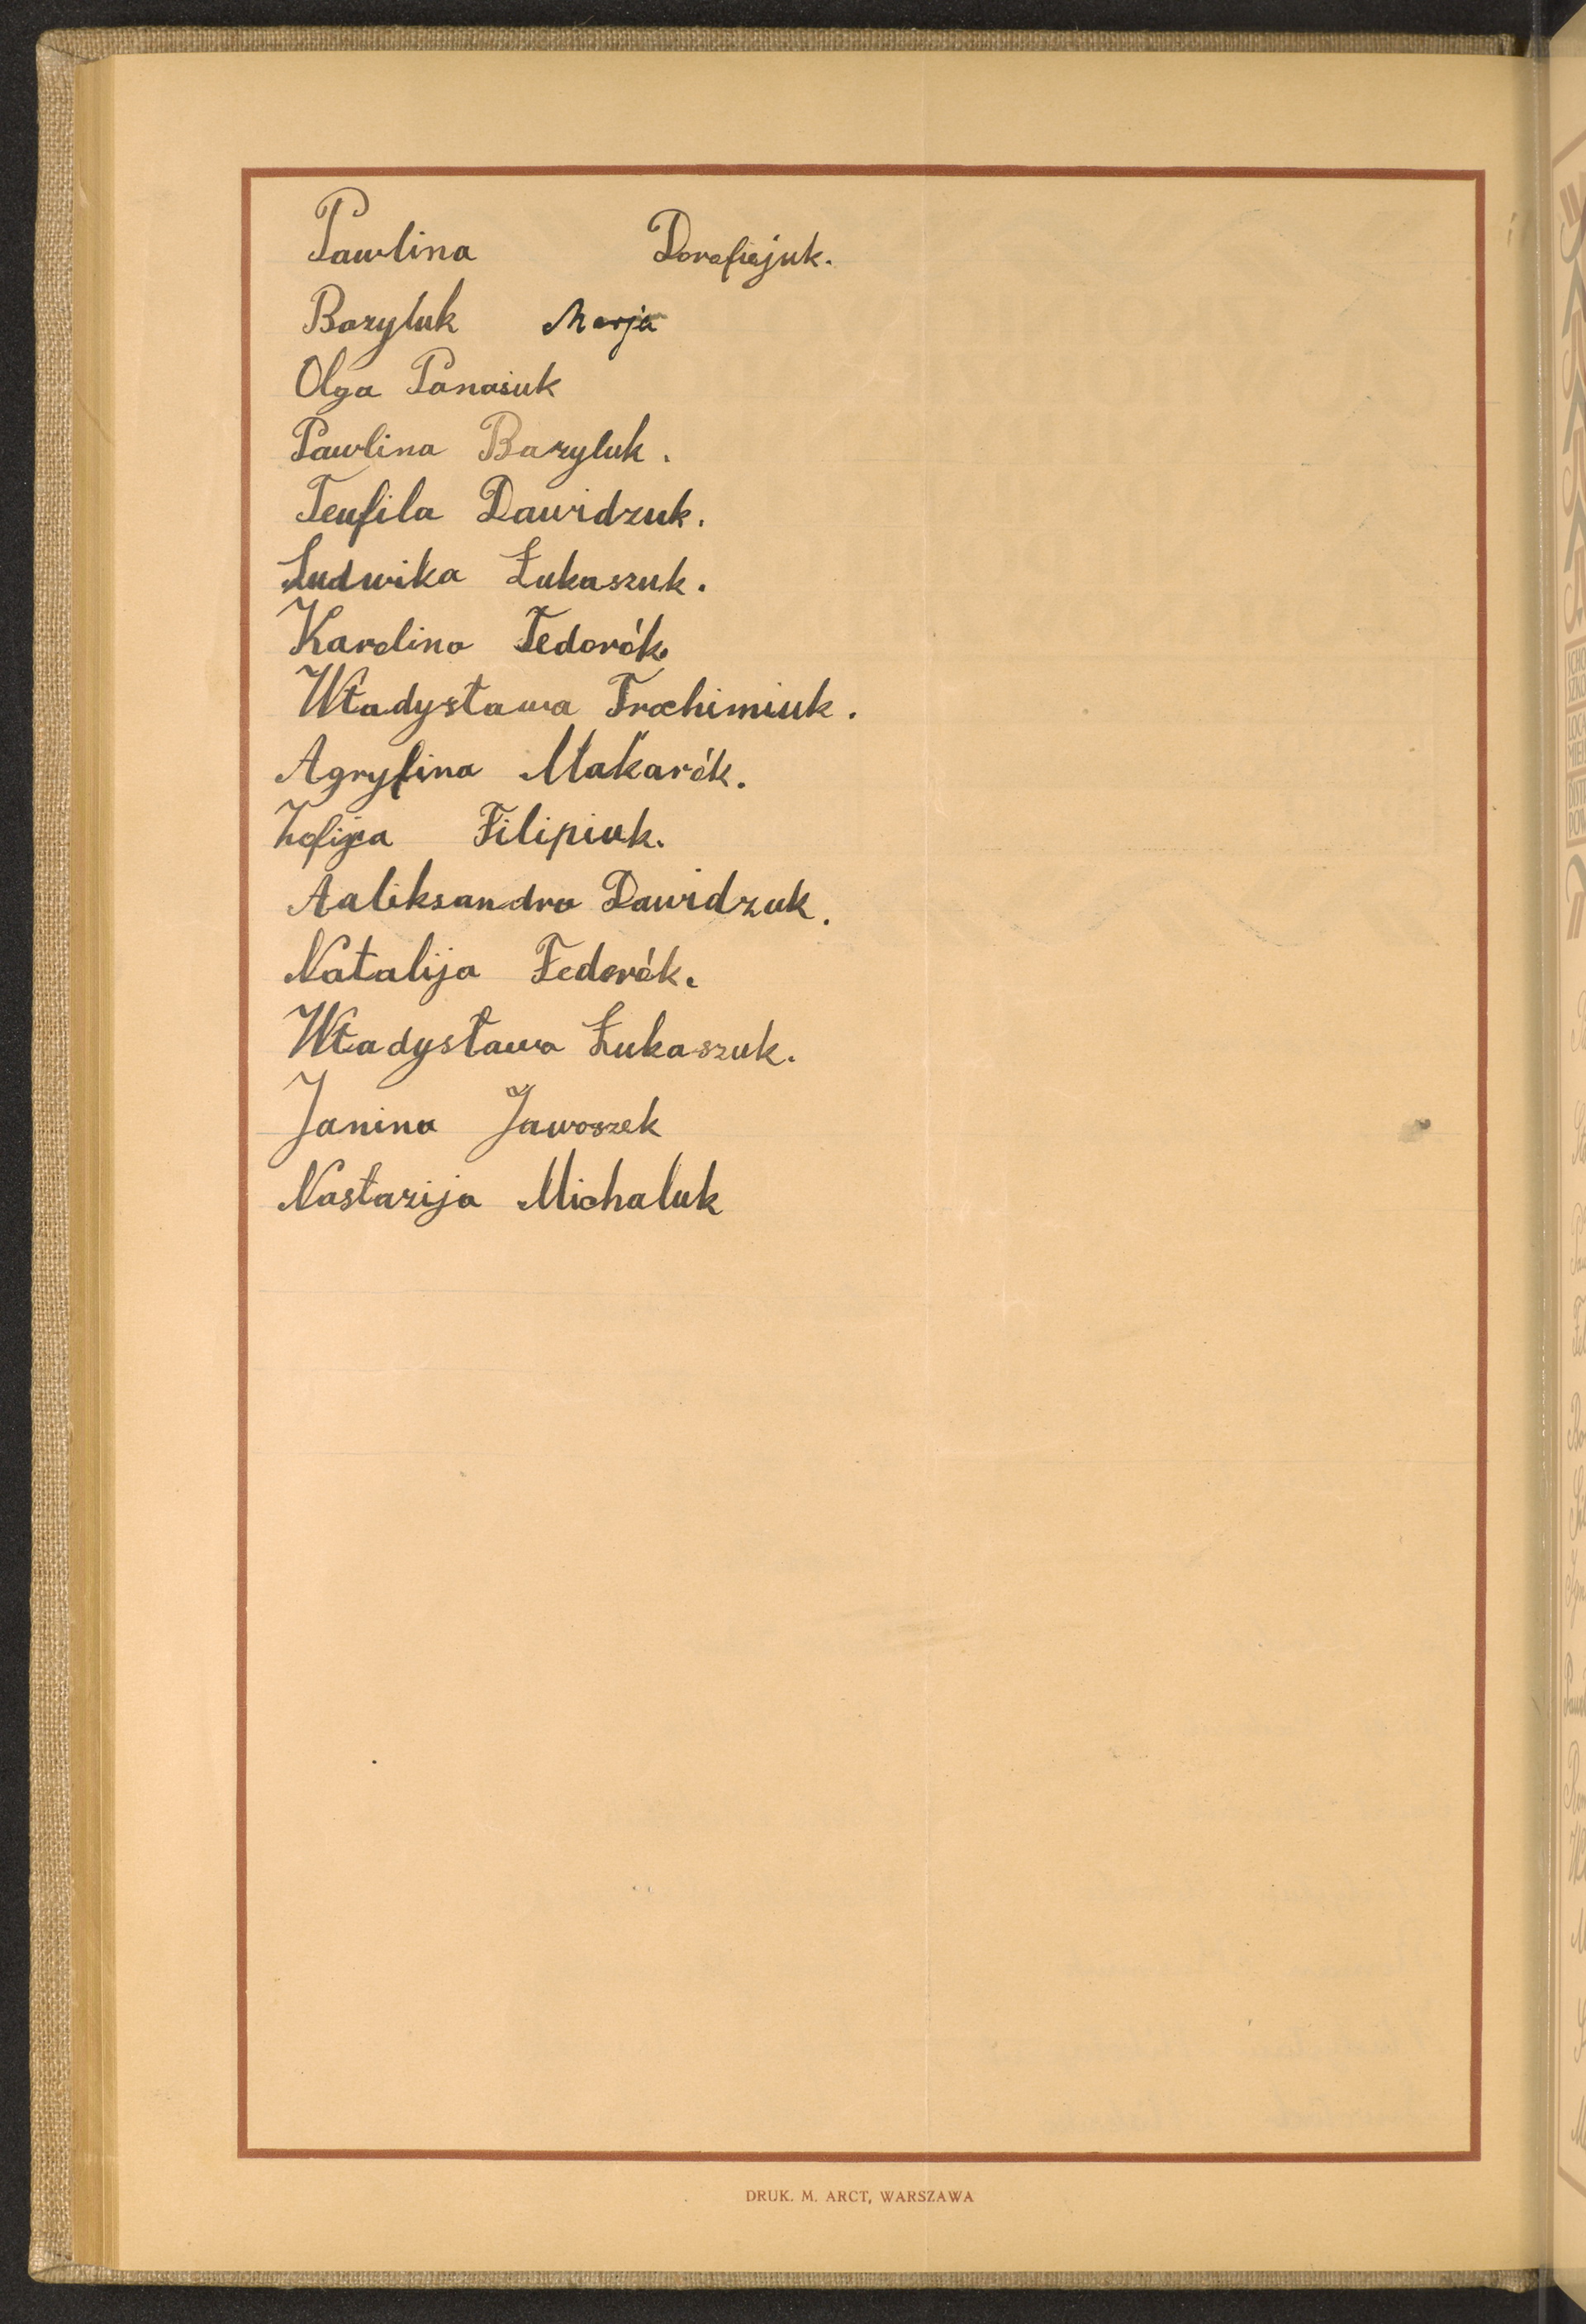 Pawlina Dorofiejuk.
Bazyluk Marja
Olga Panasiuk
Pawlina Bazyluk.
Teufila Dawidzuk.
Ludwika Łukaszuk.
Karolina Fedorók.
Władysława Trochimiuk.
Agryfina Makarók.
Zofija Filipiuk.
Aaliksandra Dawidzuk.
Natalija Fedorók.
Władysława Łukaszuk.
Janina Jawoszek
Nastazija Michaluk
DRUK. M. ARCT, WARSZAWA